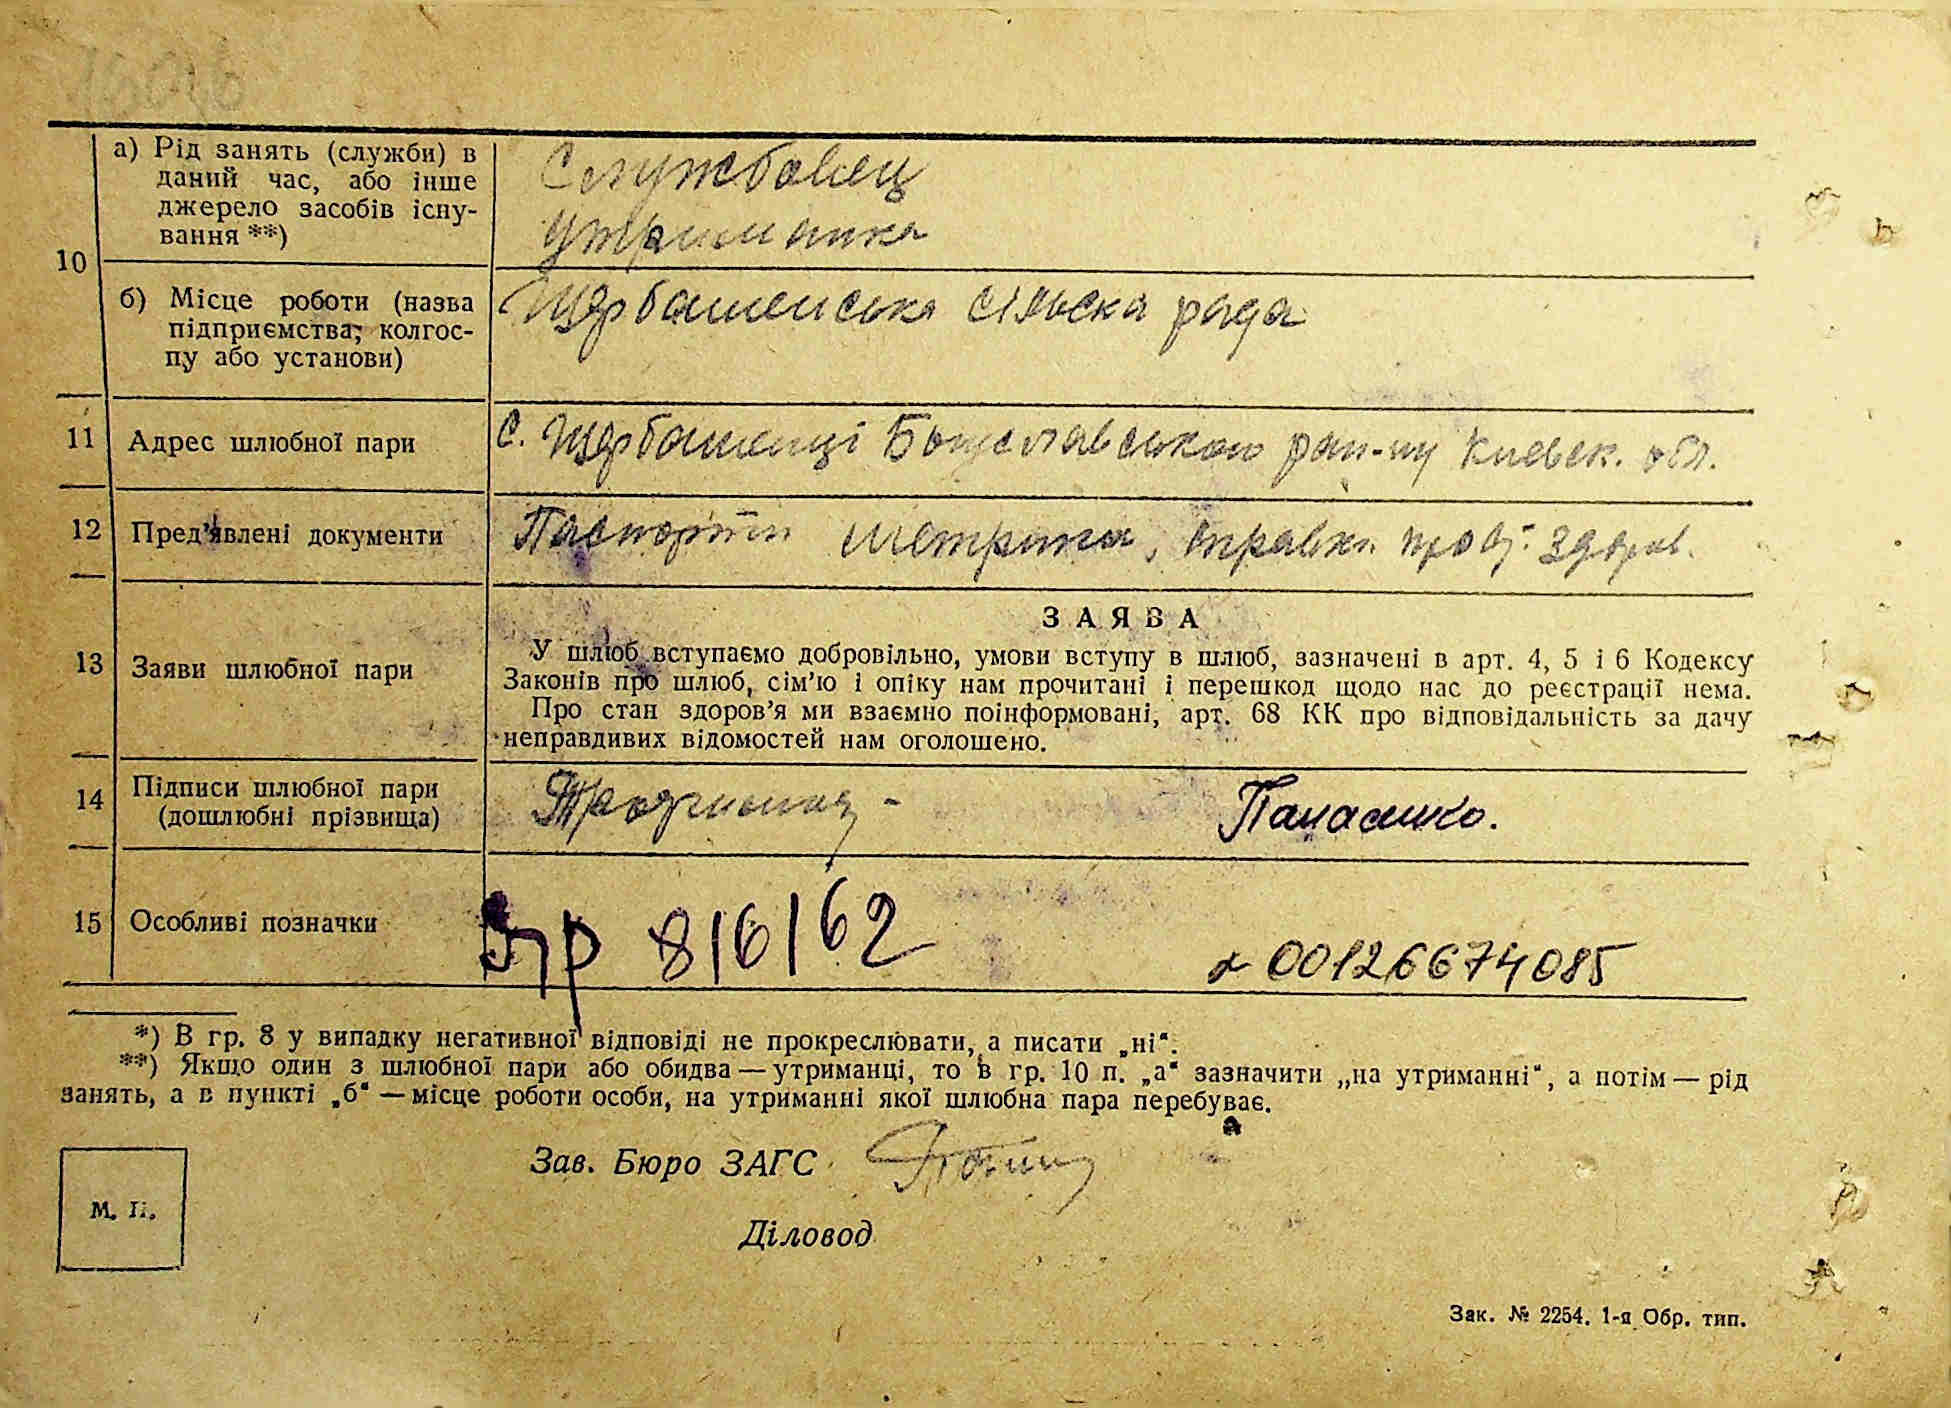 10
а) Рід занять (служби) в
даний час, або інше
джерело засобів існу-
вання **)
Службовец
утриманка
б) Місце роботи (назва
підприємства, колгос-
пу або установи)
Щербашенська сільска рада
11
Адрес шлюбної пари
С. Щербашенці Богуславського рай-ну Киевск. обл.
12
Пред'явлені документи
Паспорти метрики, справки про здоров.
13
Заяви шлюбної пари
ЗАЯВА
У шлюб вступаємо добровільно, умови вступу в шлюб, зазначені в арт. 4, 5 і 6 Кодексу
Законів про шлюб, сім'ю і опіку нам прочитані і перешкод щодо нас до реєстрації нема.
Про стан здоров'я ми взаємно поінформовані, арт. 68 КК про відповідальність за дачу
неправдивих відомостей нам оголошено.
14
Підписи шлюбної пари
(дошлюбні прізвища)
Панасенко.
15
Особливі позначки
816162
00126674085
*) В гр. 8 у випадку негативної відповіді не прокреслювати, а писати „ні“.
**) Якщо один з шлюбної пари або обидва — утриманці, то в гр. 10 п. „а“ зазначити „на утриманні“, а потім — рід
занять, а в пункті „б“ — місце роботи особи, на утриманні якої шлюбна пара перебуває.
Зав. Бюро ЗАГС
М. П.
Діловод
Зак. № 2254. 1-я Обр. тип.